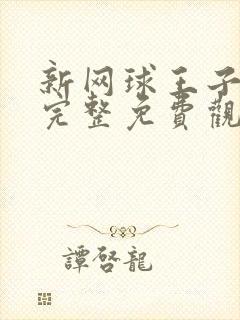 新网球王子
完整免費觀
譚啓龍